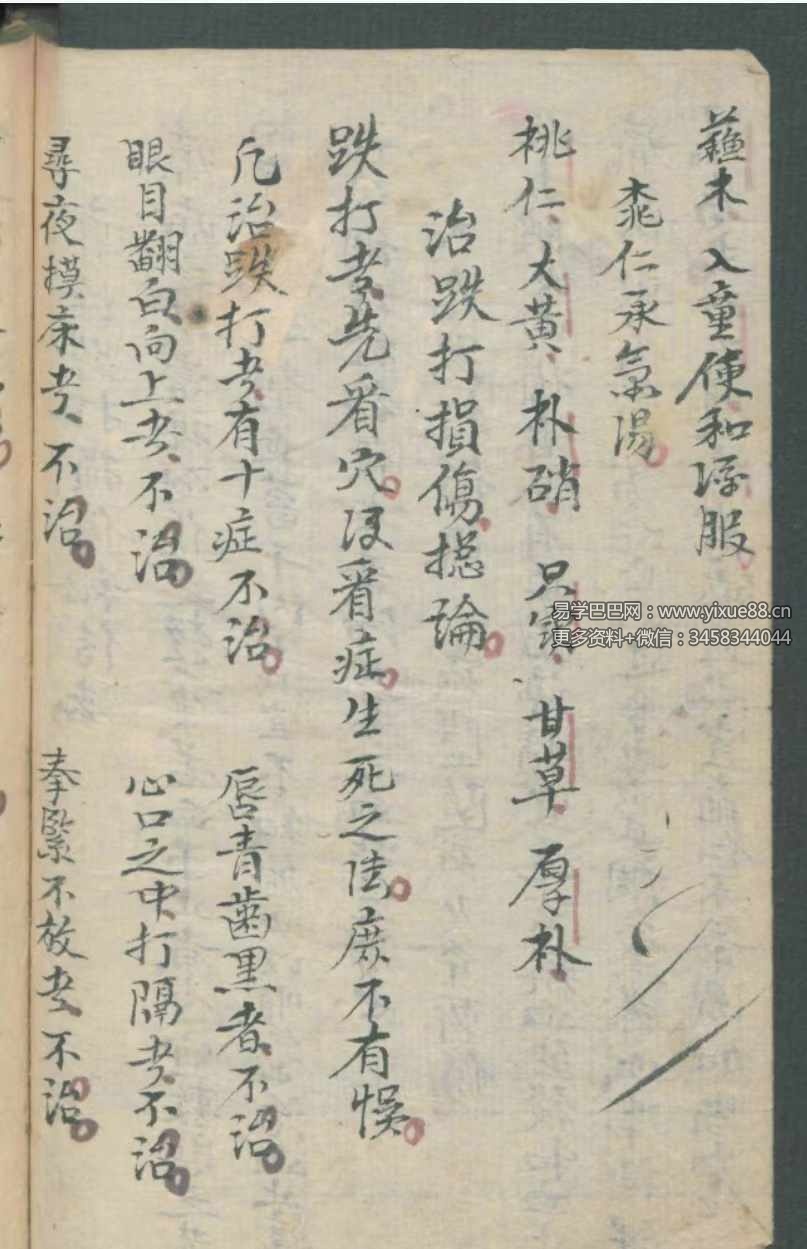 蘓木 入童便和酒服
桃仁承氣湯
桃仁 大黄 朴硝 只實 甘草 厚朴
治跌打損傷総論
跌打者先看穴後看症生死之法庶不有悞
凡治跌打者有十症不治 唇青齒黑者不治
眼目翻白向上者不治 心口之中打隔者不治
尋夜摸床者不治 奉緊不放者不治
易学巴巴网：www.yixue88.cn
更多资料+微信：3458344044